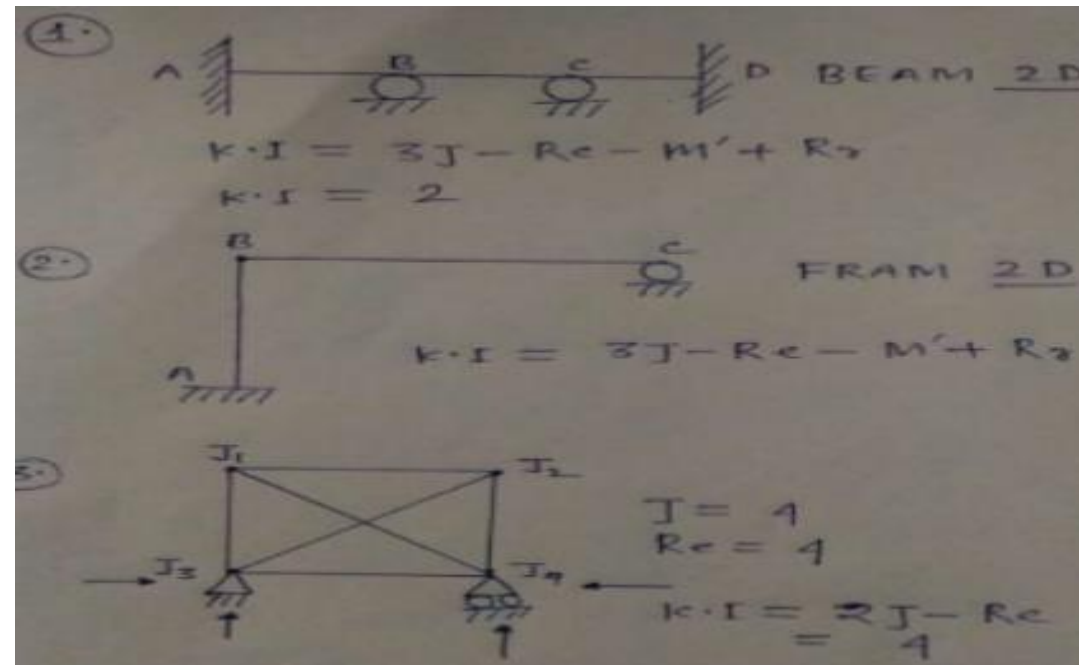 1.
A B C D BEAM 2D
K.I = 3J - Re - M' + Rr
K.I = 2
2.
B C FRAM 2D
K.I = 3J - Re - M' + Rr
A
3.
J1 J2
J = 4
Re = 4
J3 J4
K.I = 2J - Re
= 4